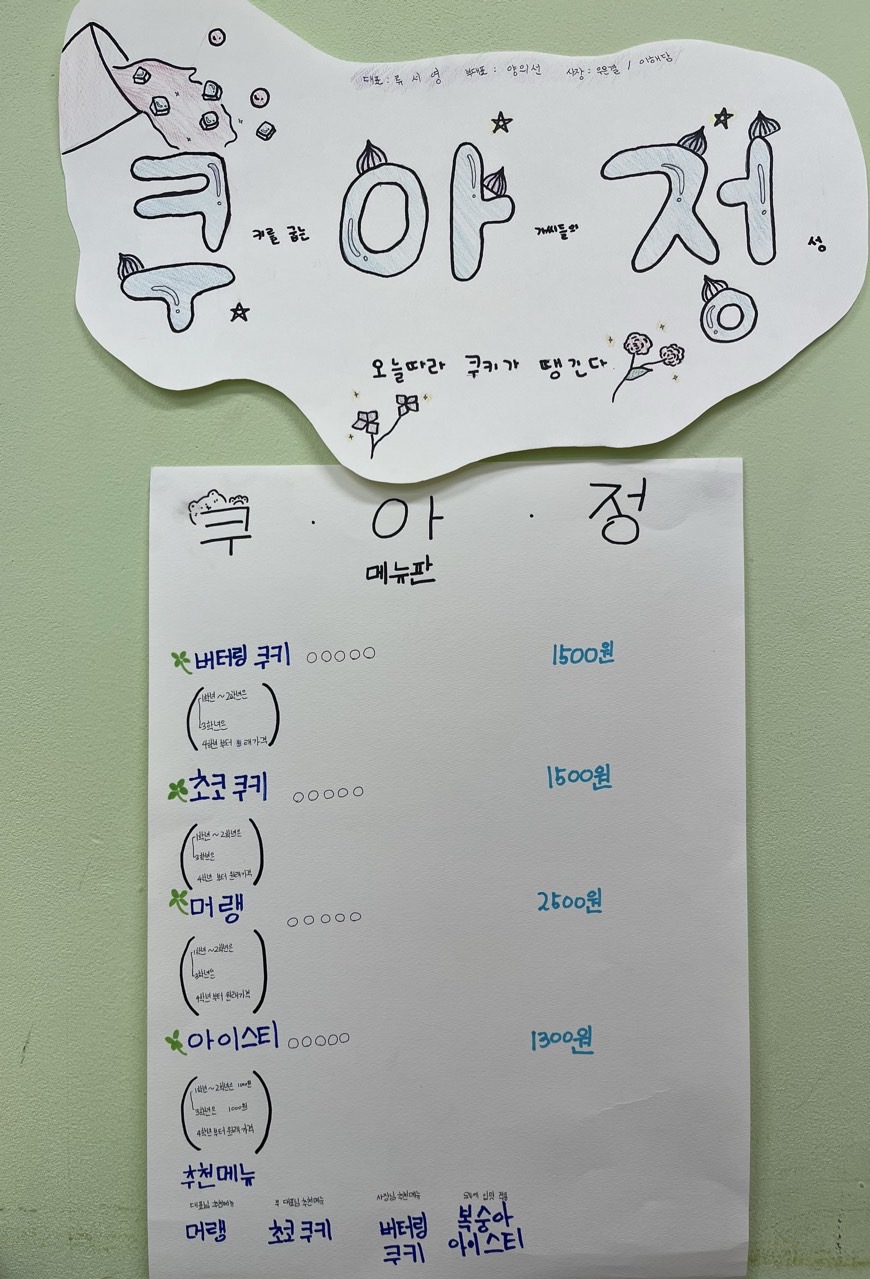 대표 : 류서영 부대표 : 양의선 사장 : 우은결 / 이해담
쿠키를 굽는 아가씨들의 정성
오늘따라 쿠키가 땡긴다
쿠 · 아 · 정
메뉴판
버터링 쿠키 ○○○○○ 1500원
1학년 ~ 2학년은
3학년은
4학년 부터 원래가격
초코 쿠키 ○○○○○ 1500원
1학년 ~ 2학년은
3학년은
4학년 부터 원래가격
머랭 ○○○○○ 2500원
1학년 ~ 2학년은
3학년은
4학년 부터 원래가격
아이스티 ○○○○○ 1300원
1학년 ~ 2학년은 1000원
3학년은 1000원
4학년 부터 원래가격
추천메뉴
대표님 추천메뉴 부 대표님 추천메뉴 사장님 추천메뉴
머랭 초코 쿠키 버터링 쿠키 복숭아 아이스티